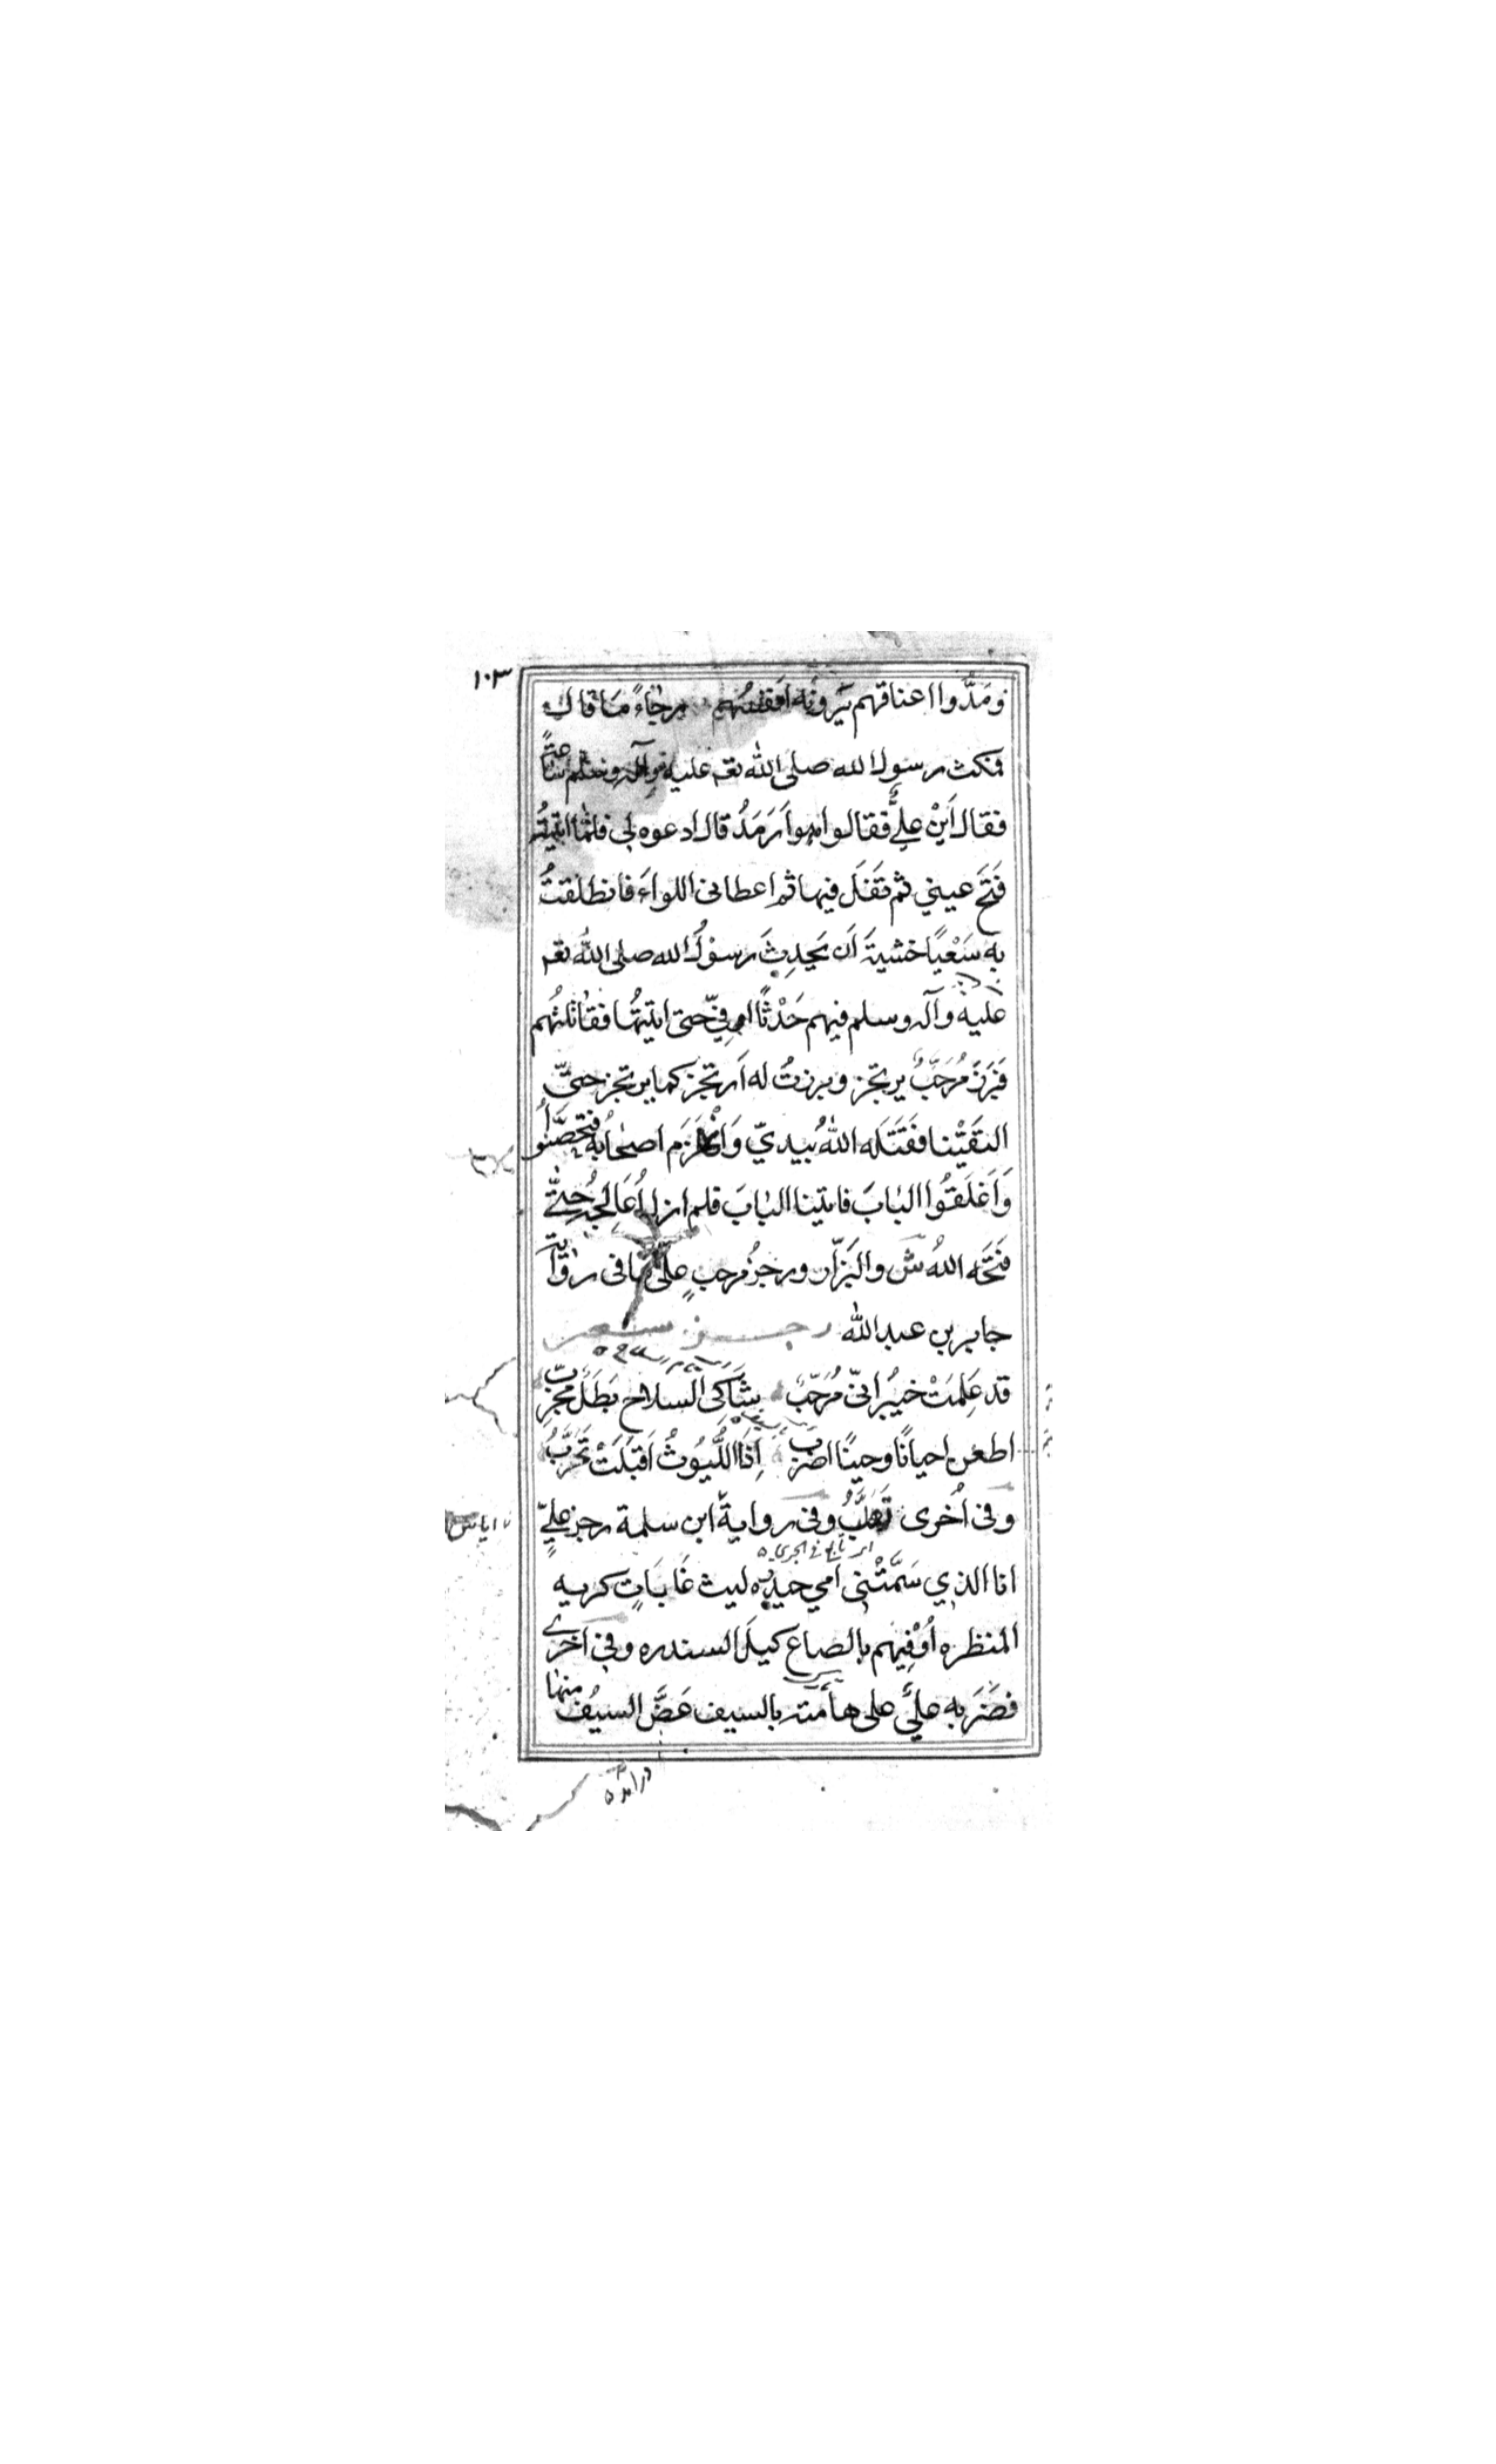 ١٠٣
ومَدُّوا اعناقهم يَرونَه انفسهم رجاءً مَا قال
فمكث رسول الله صلى الله تعم عليه وآله وسلم ساعةً
فقال اَيْن عليٌّ فقالوا هو اَرمَدُ قال ادعوه لي فلمّا اتيتُه
فَتَح عيني ثم تَفَلَ فيها ثم اعطاني اللواءَ فانطلقتُ
به سَعْيًا خشيةَ اَن يحدِثَ رسولُ الله صلى الله تعم
عليه وآله وسلم فيهم حَدْثًا او فِيَّ حتى اتيتُها فقاتلتُهم
فبَرَزَ مُرَحَّبٌ يرتجز وبرزتُ له اَرتجز كما يرتجز حتىّ
التقَيْنا فقَتَلَه اللهُ بيديّ وَانْهَزَم اصحابُه فتحصَّنُوا
وَاَغلَقُوا البابَ فاتينا البابَ فلم ازل اُعَالجُه حتّى
فَتَحَه اللهُ ش والبَزّار ورجزُ مرحبٍ علَى ما في رواية
جابر بن عبدالله رجز شعر
قد عَلِمَتْ خيبُر انّي مُرَحَّبٌ شَاكي السلاح بَطَلٌ مجَرَّبٌ
اطعُن احيانًا وحينًا اضرِب اِذَا اللُّيُوثُ اَقبَلَتْ تَحَرَّبُ
وفي اُخرى تَلَهَّبُ وفي رواية ابن سلمة رجز عليٍّ
انا الذي سَمَّتْني اُمي حيدره ليث غَابَاتٍ كريه
المنظره اُوْفِيهم بالصاع كيلَ السندره وفي اخرى
فضَرَبه عليٌّ على هامته بالسيف عَضَّ السيفُ منها
اياس